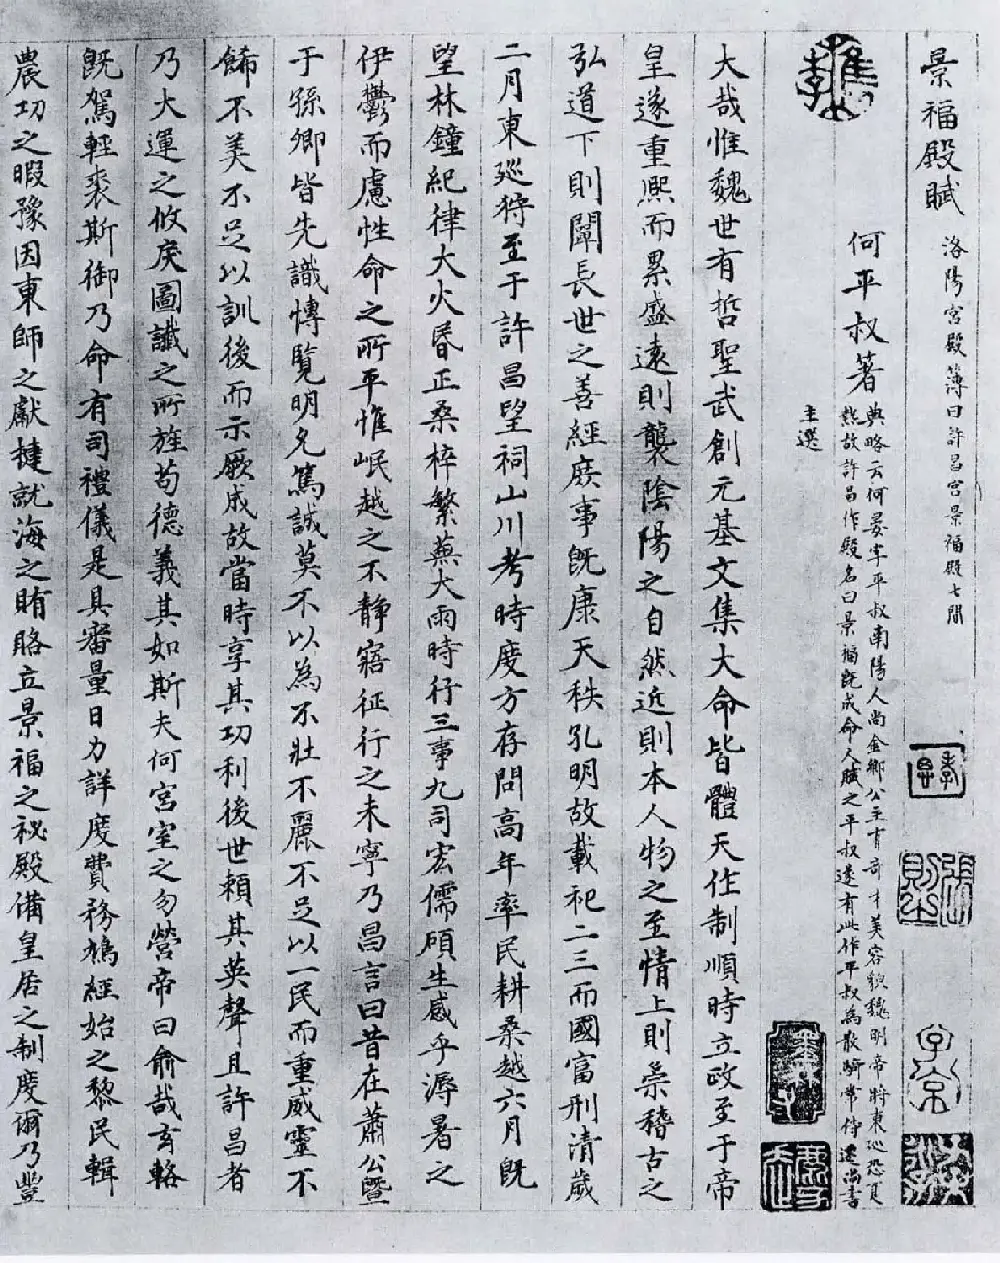 景福殿賦 洛陽宮殿薄曰許昌宮景福殿七間
何平叔著 典略云何晏字平叔南陽人尚金鄉公主有奇才美容貌魏明帝將東巡恐夏
熱故許昌作殿名曰景福既成命人賦之平叔遂有此作平叔為散騎常侍遷尚書
主選
大哉惟魏世有哲聖武創元基文集大命皆體天作制順時立政至于帝
皇遂重熙而累盛遠則襲陰陽之自然近則本人物之至情上則崇稽古之
弘道下則闡長世之善經庶事既康天秩孔明故載祀二三而國富刑清歲
二月東巡狩至于許昌望祠山川考時度方存問高年率民耕桑越六月既
望林鐘紀律大火昏正桑梓繁蕪大雨時行三事九司宏儒碩生感乎溽暑之
伊鬱而慮性命之所平惟岷越之不靜寤征行之未寧乃昌言曰昔在蕭公暨
于孫卿皆先識博覽明允篤誠莫不以為不壯不麗不足以一民而重威靈不
飾不美不足以訓後而示厥成故當時享其功利後世賴其英聲且許昌者
乃大運之攸戾圖讖之所旌苟德義其如斯夫何宮室之勿營帝曰俞哉玄輅
既駕輕裘斯御乃命有司禮儀是具審量日力詳度費務鳩經始之黎民輯
農功之暇豫因東師之獻捷就海之賄賂立景福之祕殿備皇居之制度爾乃豐